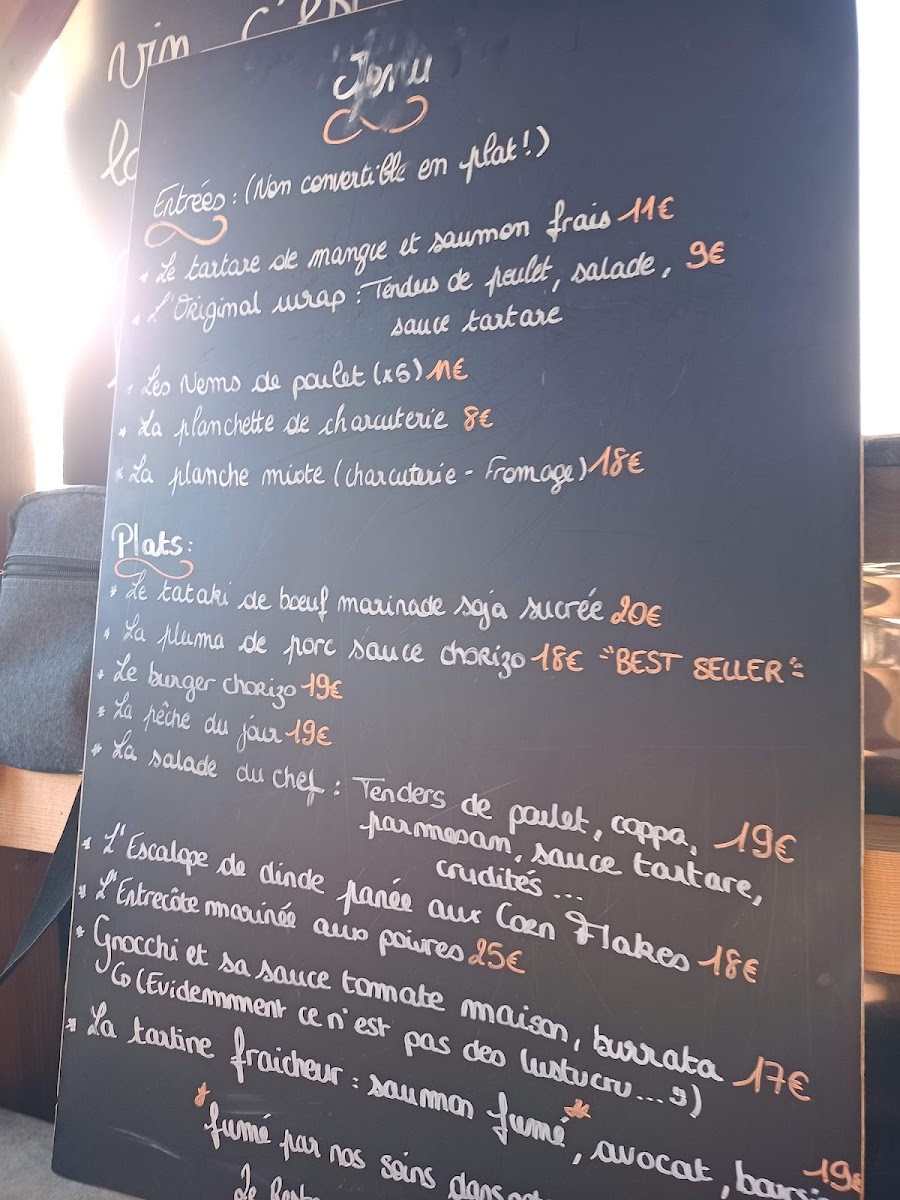 vin c'est
Menu
Entrées : (Non convertible en plat!)
* Le tartare de mangue et saumon frais 11€
* L'Original wrap : Tenders de poulet, salade, 9€
sauce tartare
* Les Nems de poulet (x6) 11€
* La planchette de charcuterie 8€
* La planche mixte (charcuterie - Fromage) 18€
Plats :
* Le tataki de bœuf marinade soja sucrée 20€
* La pluma de porc sauce chorizo 18€ "BEST SELLER"
* Le burger chorizo 19€
* La pêche du jour 19€
* La salade du chef : Tenders de poulet, coppa, 19€
parmesan, sauce tartare,
crudités ...
* L'Escalope de dinde panée aux Corn Flakes 18€
* L'Entrecôte marinée aux poivres 25€
* Gnocchi et sa sauce tomate maison, burrata 17€
(Evidemmment ce n'est pas des lustucru...)
* La tartine fraicheur : saumon fumé*, avocat, 19€
* fumé par nos soins dans
Le